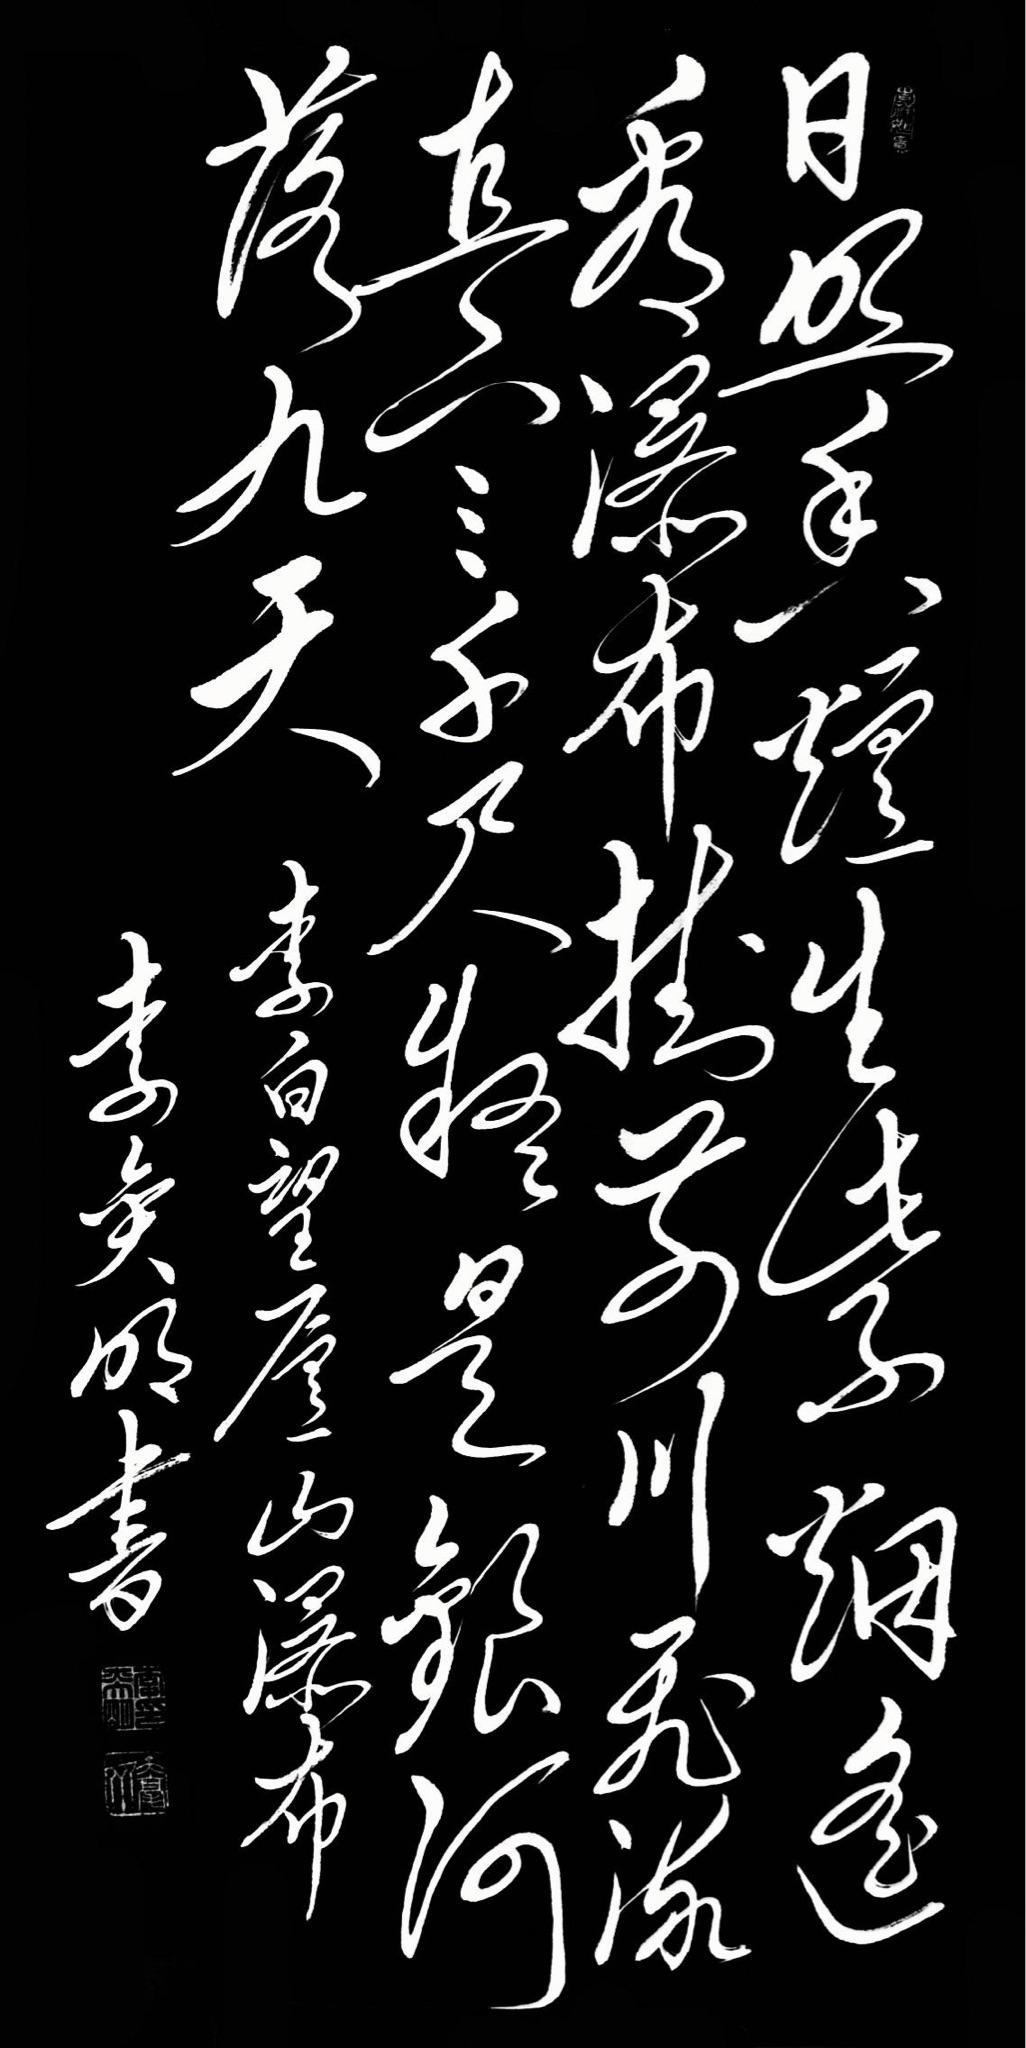 日照香爐生紫烟遥
看瀑布掛前川飛流
直下三千尺疑是銀河
落九天 李白望廬山瀑布
李奂明書